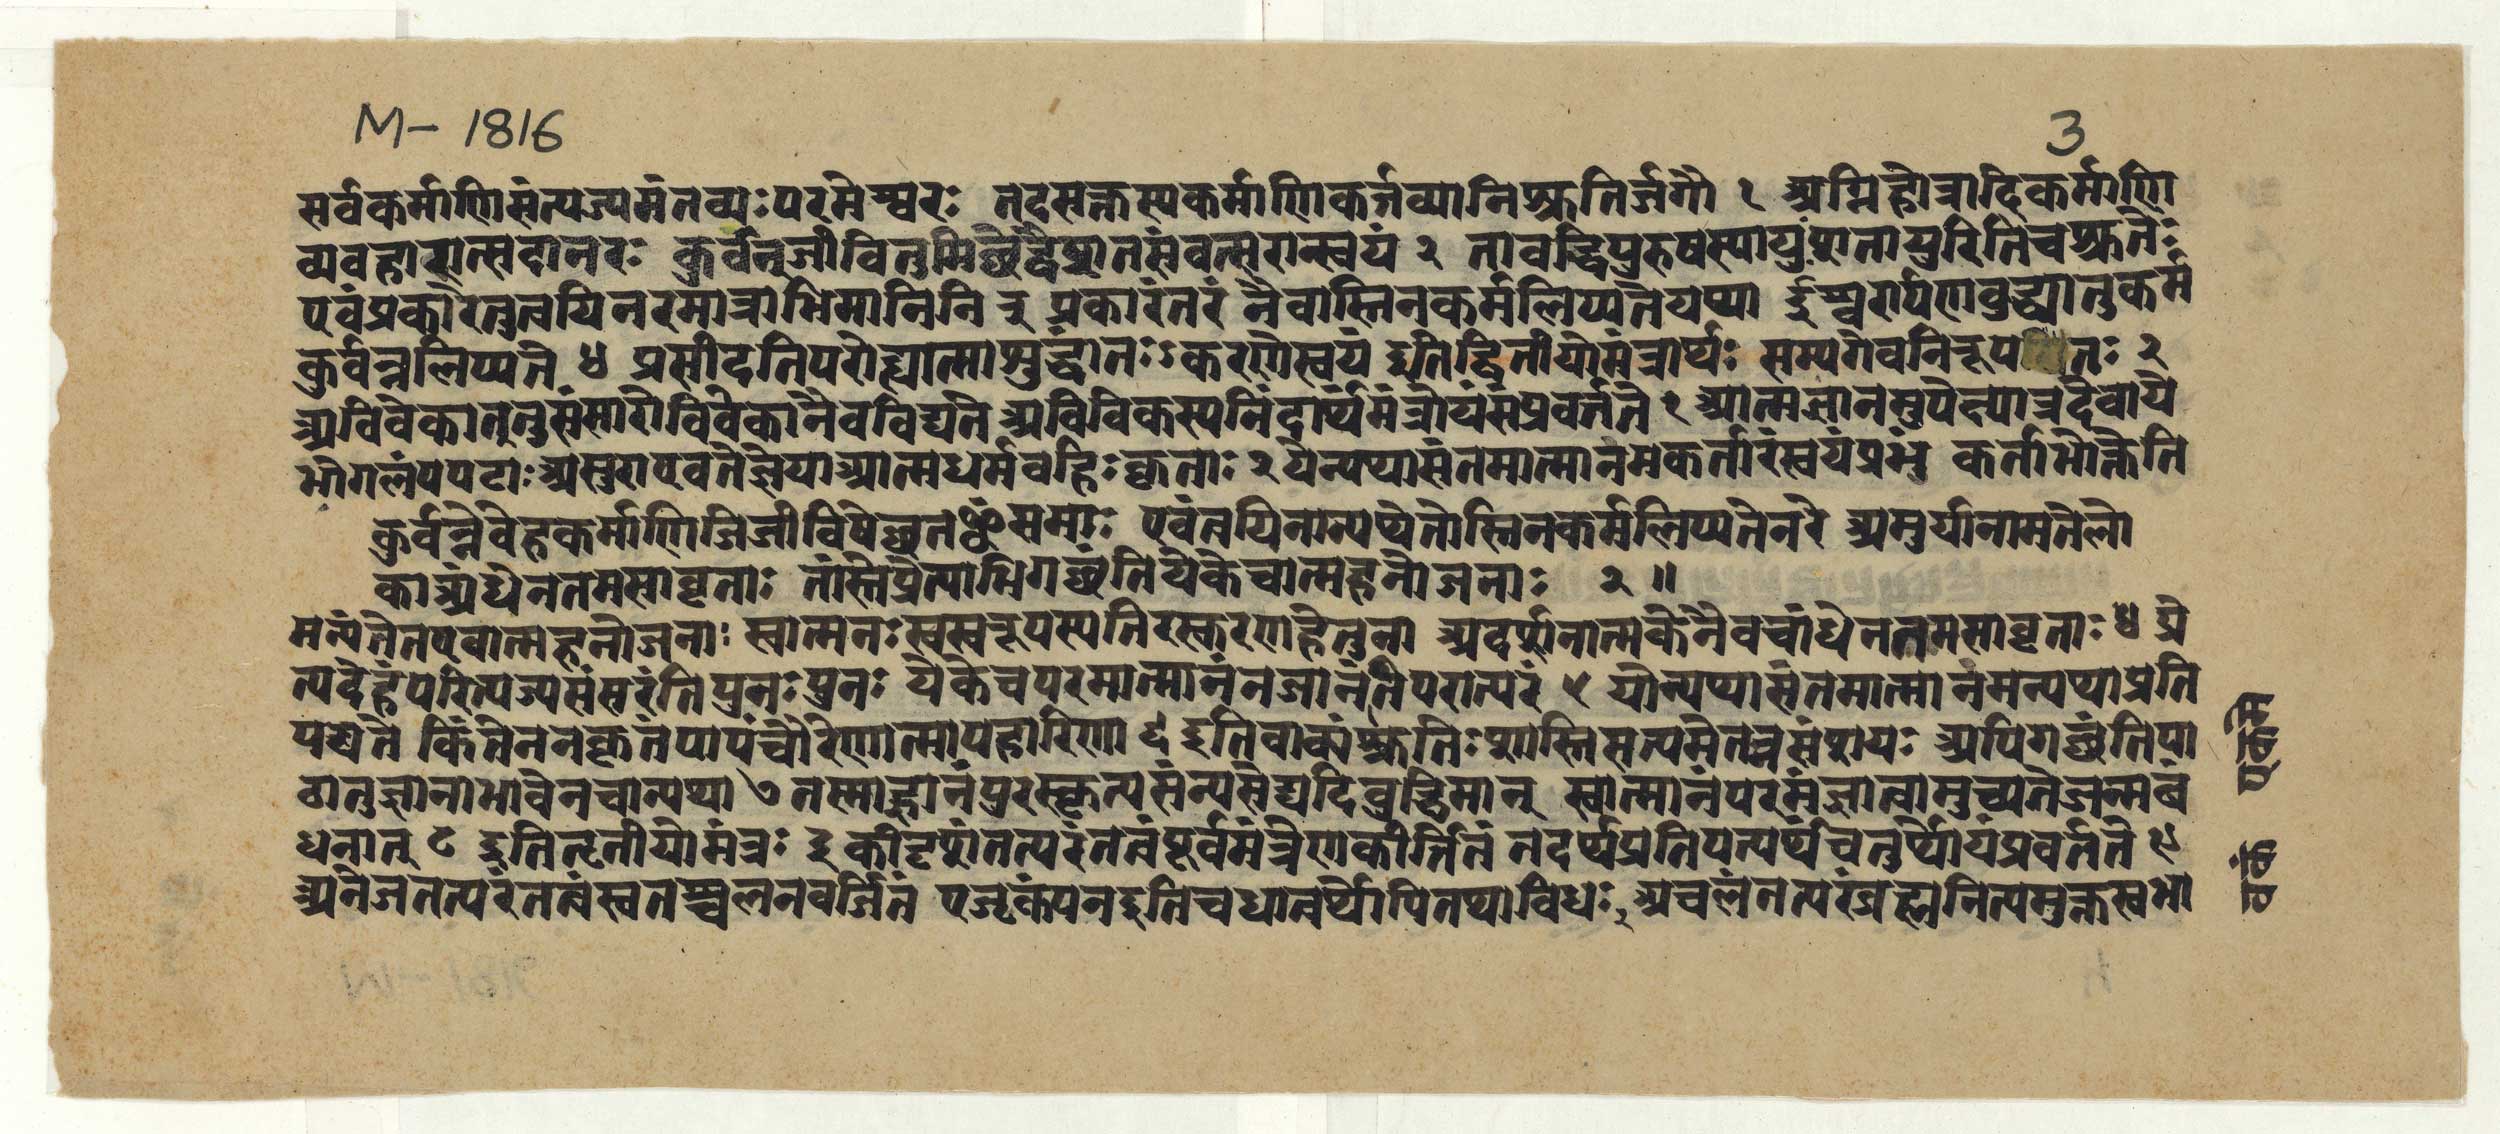 M- 1816
3
सर्वकर्माणिसंत्यज्यमंतव्यःपरमेश्वरः तदसक्तस्यकर्माणिकर्तव्यानिश्रुतिर्जगौ १ अग्निहोत्रादिकर्माणि
व्यवहारात्सदानरः कुर्वन्जीवितुमिच्छेद्वैशतसंवत्सरान्स्वयं २ तावद्धिपुरुषस्यायुःशतायुरितिचश्रुतेः
एवंप्रकारेतुत्वयिनरमात्राभिमानिनि ३ प्रकारंतरं नैवास्तिनकर्मलिप्यतेयया ईश्वरार्पणबुद्ध्यातुकर्म
कुर्वन्नलिप्यते ४ प्रसीदतिपरोह्यात्माशुद्धांतःऽकरणेस्वयं इति द्वितीयोमंत्रार्थः सम्यगेवनिरूपतः २
अविवेकात्तुसंसारोविवेकानैवविद्यते अविविकस्यनिंदार्थमंत्रोयंसंप्रवर्तते १ आत्मज्ञानमुपेह्यात्रदेवाये
भोगलंपपटाः असुराएवतेज्ञेयाआत्मधर्मवहिःकृताः २ येन्यप्यासंतमात्मानमकर्तारंस्वयंप्रभु कर्ताभोक्तेति
कुर्वन्नेवेहकर्माणिजिजीविषेच्छतꣳसमाः एवंत्वयिनान्यथेतोस्तिनकर्मलिप्यतेनरे असुर्यानामतेलो
काअंधेनतमसावृताः तांस्तेप्रेत्याभिगच्छंतियेकेचात्महनोजनाः २ ॥
मन्यंतेतएवात्महनोजनाः स्वात्मनःस्वस्वरूपस्यतिरस्करणहेतुना अदर्शनात्मकेनैवचांधेनतमसावृताः ४ प्रे
त्यदेहंपरित्यज्यसंसरंतिपुनःपुनः येकेचपरमात्मानंनजानंतिपरात्परं ५ योन्यथासंतमात्मानमन्यथाप्रति
पद्यते किंतेननकृतंपापंचौरेणात्मापहारिणा ६ इतिवाक्यंश्रुतिःशास्तिसत्यमेतन्नसंशयः अपिगच्छंतिपा
ठातुज्ञानाभावेनचान्यथा ७ तस्माज्ज्ञानंपुरस्कृत्यसंन्यसेद्यदिबुद्धिमान् स्वात्मानंपरमंज्ञात्वामुच्यतेजन्मबं
धनात् ८ इतितृतीयोमंत्रः ३ कीदृशंतत्परंतत्वंपूर्वमंत्रेणकीर्तितं तदर्थप्रतिपत्यर्थचतुर्थोयंप्रवर्तते १
अनेजतत्परंतत्वंस्वतश्चलनवर्जितं एजृकंपनइतिचधात्वर्थोपितथाविधः २ अचलंतत्परंब्रह्मनित्यमुक्तस्वभा